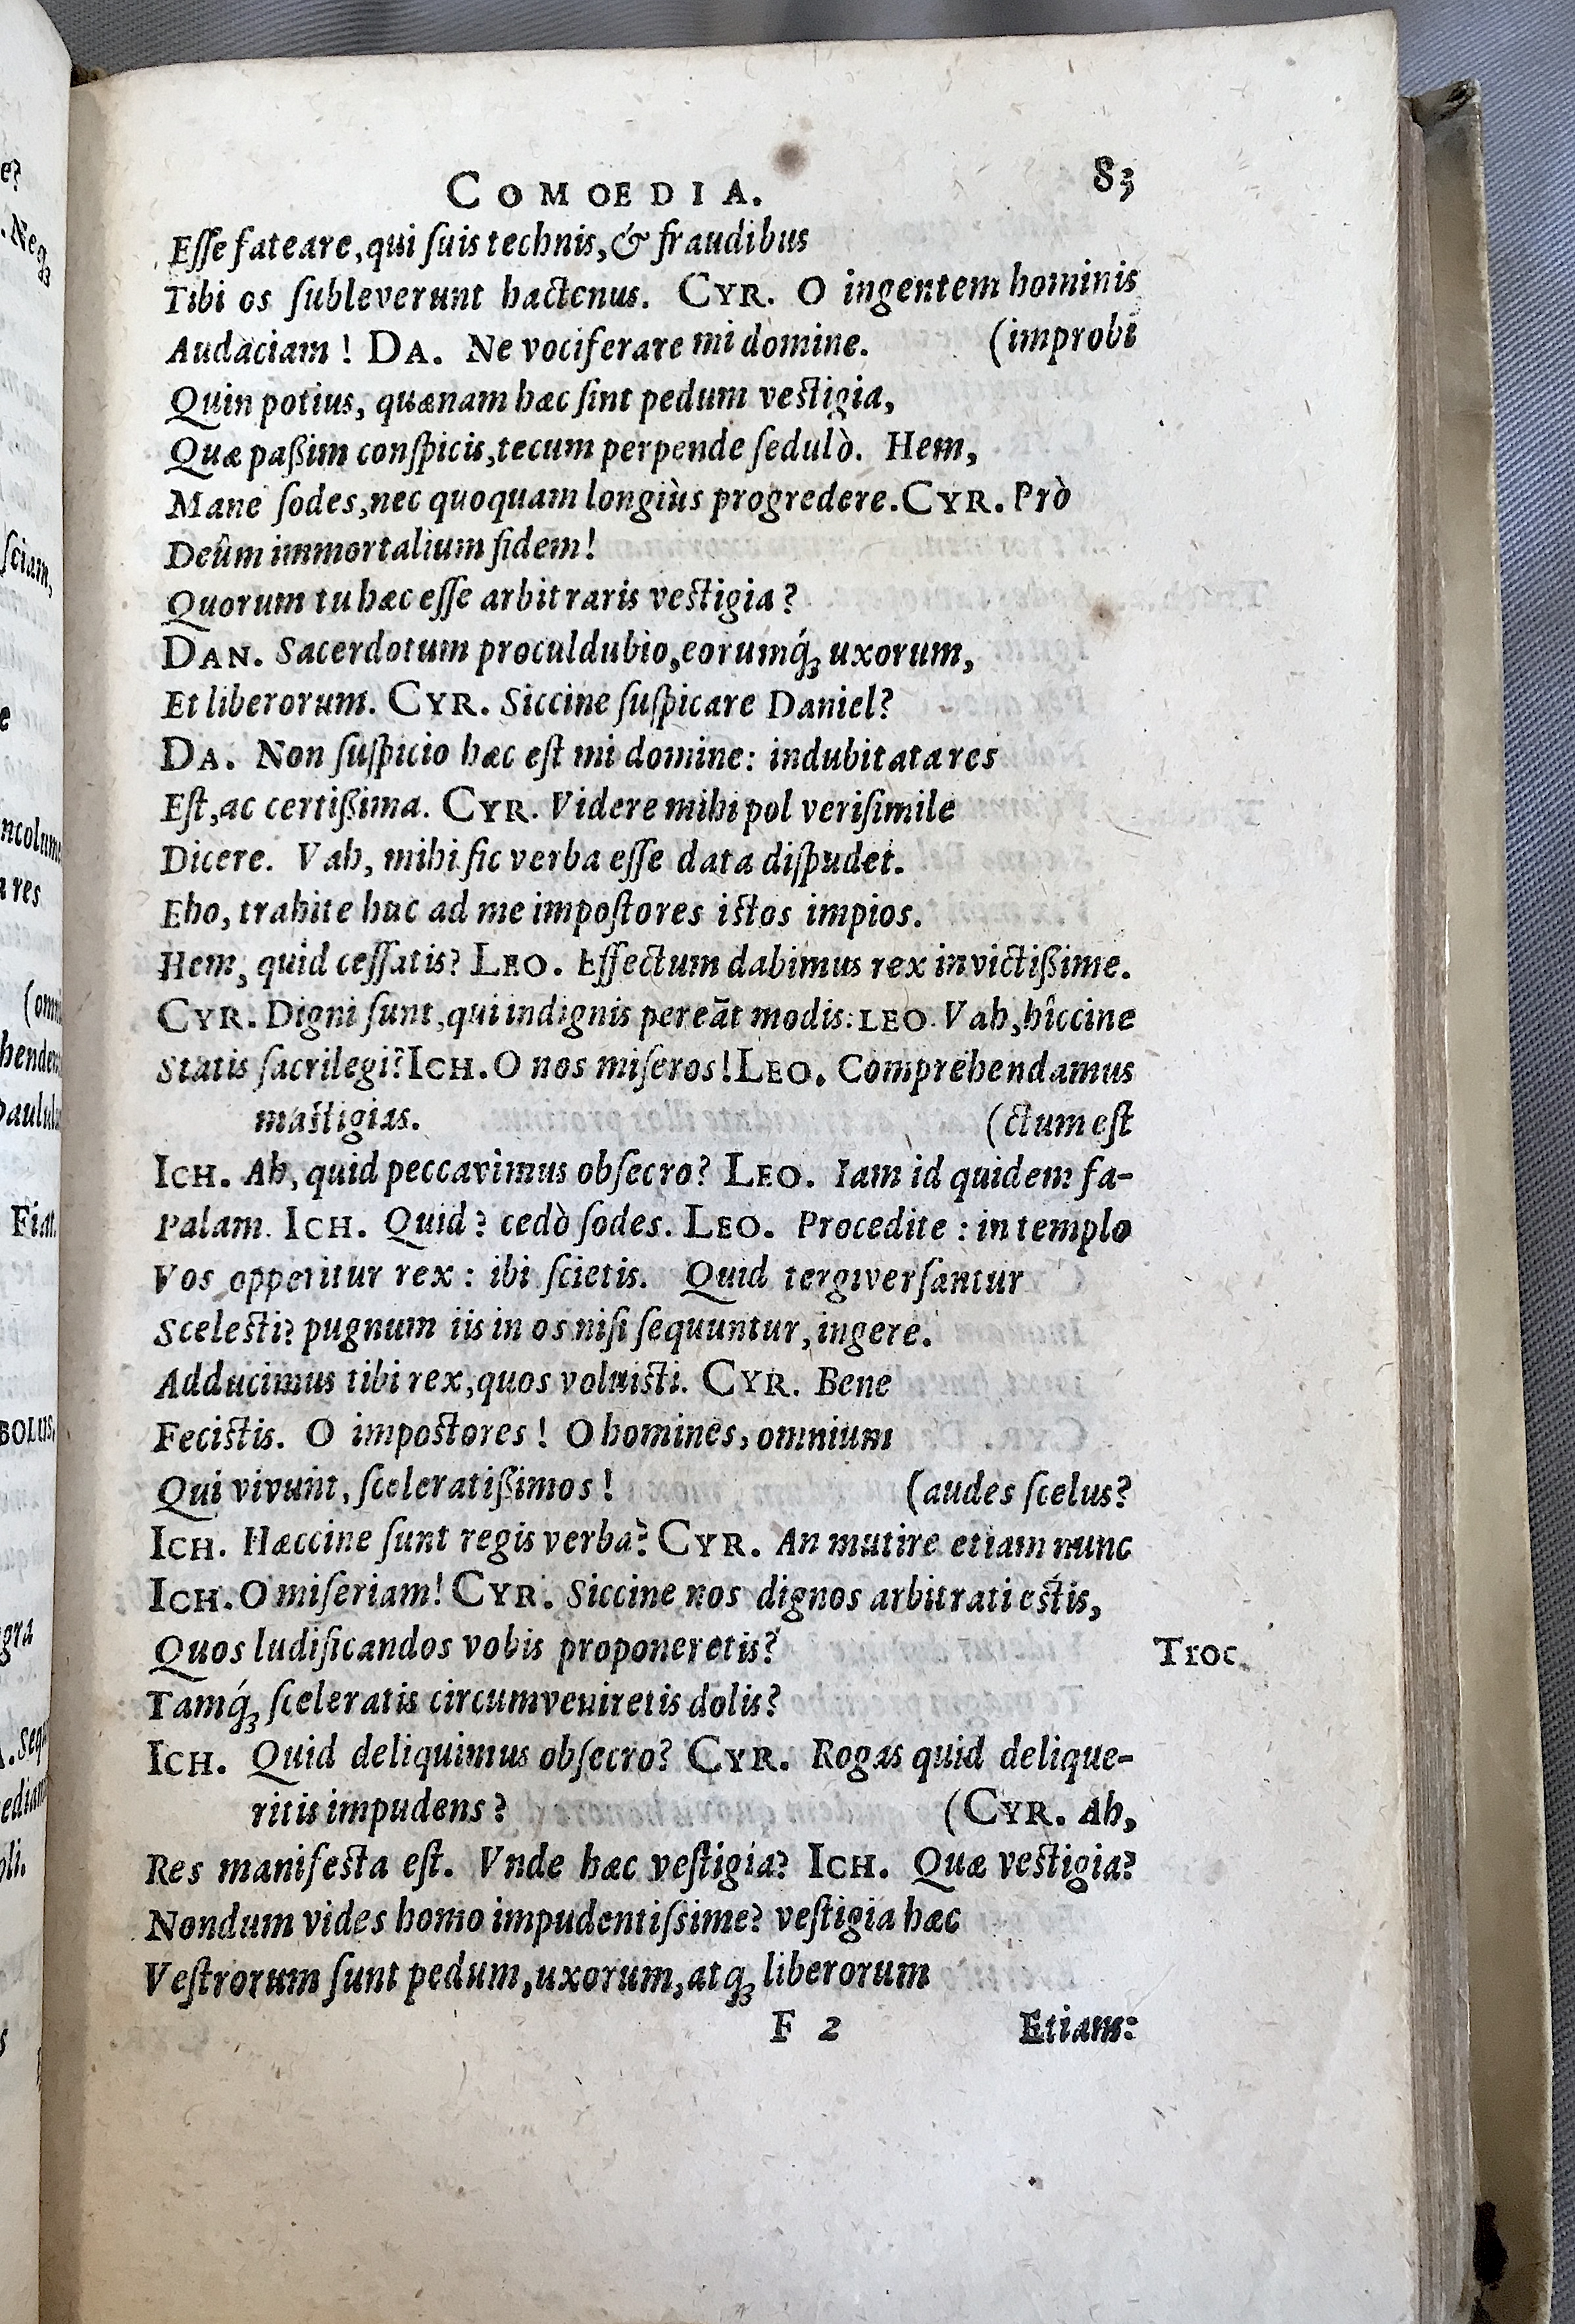 COMOEDIA. 83
Eſſe fateare, qui ſuis technis, & fraudibus
Tibi os ſubleverunt hactenus. CYR. O ingentem hominis
Audaciam! DA. Ne vociferare mi domine. (improbi
Quin potius, quænam hæc ſint pedum veſtigia,
Quæ paßim conſpicis, tecum perpende ſedulò. Hem,
Mane ſodes, nec quoquam longiùs progredere. CYR. Prò
Deûm immortalium fidem!
Quorum tu hæc eſſe arbitraris veſtigia?
DAN. Sacerdotum proculdubio, eorumq́ꝫ uxorum,
Et liberorum. CYR. Siccine ſuſpicare Daniel?
DA. Non ſuſpicio hæc eſt mi domine: indubitata res
Eſt, ac certißima. CYR. Videre mihi pol veriſimile
Dicere. Vah, mihi ſic verba eſſe data diſpudet.
Eho, trahite huc ad me impoſtores iſtos impios.
Hem, quid ceſſatis? LEO. Effectum dabimus rex invictißime.
CYR. Digni ſunt, qui indignis pereāt modis. LEO. Vah, hîccine
Statis ſacrilegi? ICH. O nos miſeros! LEO. Comprehendamus
maſtigias. (ctum eſt
ICH. Ah, quid peccavimus obſecro? LEO. Iam id quidem fa-
Palam. ICH. Quid? cedò ſodes. LEO. Procedite: in templo
Vos opperitur rex: ibi ſcietis. Quid tergiverſantur
Sceleſti? pugnum iis in os niſi ſequuntur, ingere.
Adducimus tibi rex, quos voluiſti. CYR. Bene
Feciſtis. O impoſtores! O homines, omnium
Qui vivunt, ſceleratißimos! (audes ſcelus?
ICH. Hæccine ſunt regis verba? CYR. An mutire etiam nunc
ICH. O miſeriam! CYR. Siccine nos dignos arbitrati eſtis,
Quos ludificandos vobis proponeretis? Troc.
Tamq́ꝫ ſceleratis circumveniretis dolis?
ICH. Quid deliquimus obſecro? CYR. Rogas quid delique-
ritis impudens? (CYR. Ah,
Res manifeſta eſt. Vnde hæc veſtigia? ICH. Quæ veſtigia?
Nondum vides homo impudentiſsime? veſtigia hæc
Veſtrorum ſunt pedum, uxorum, atqꝫ liberorum
F 2 Etiam: